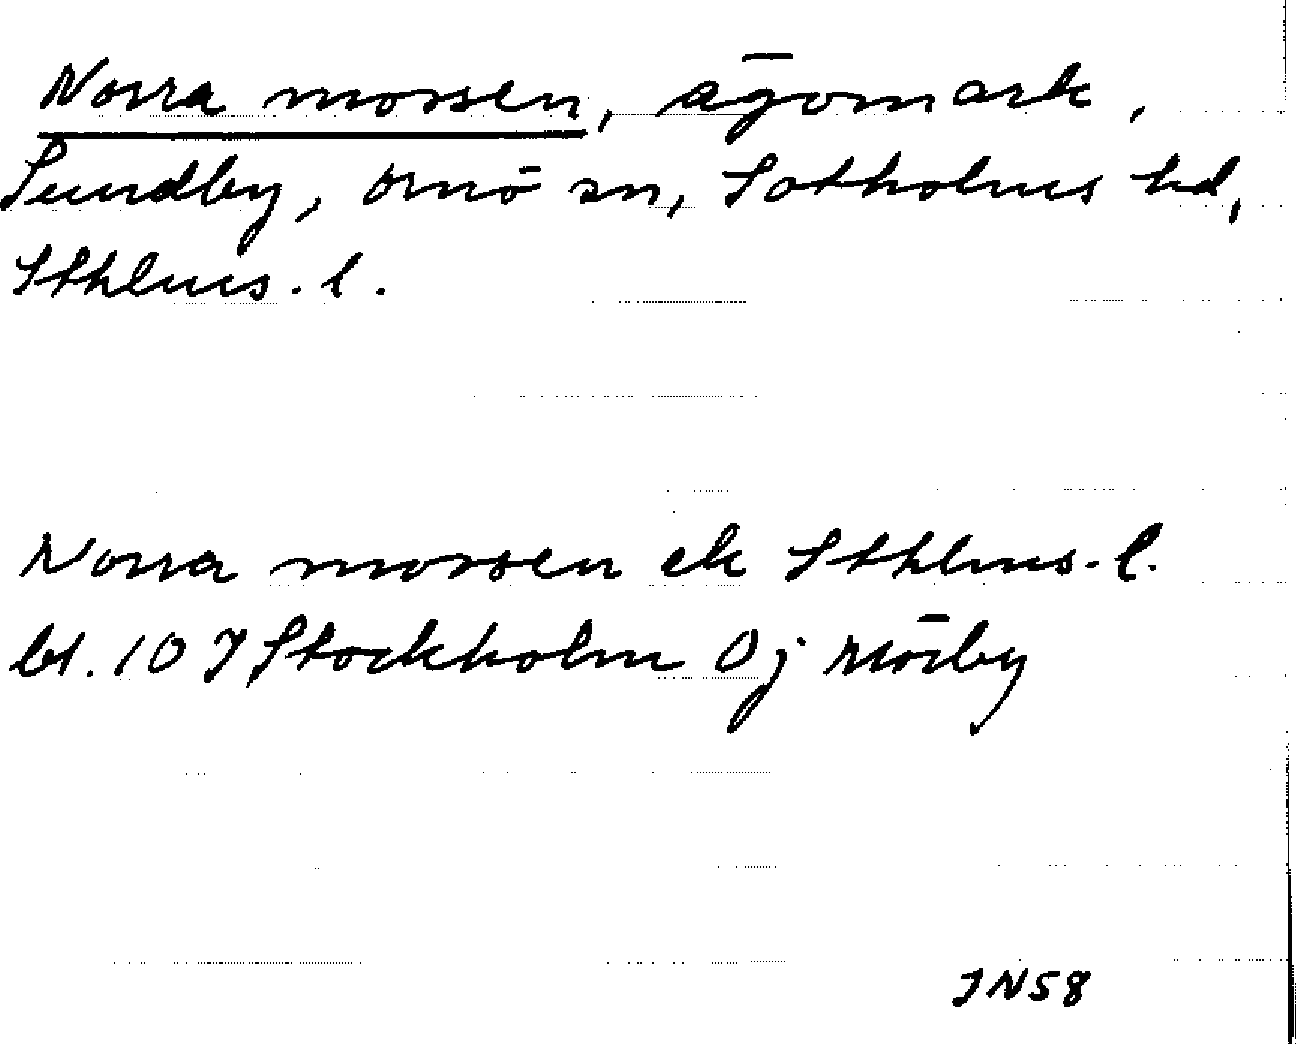 Norra mossen, ägomark,
Sundby, Ornö sn, Sotholms hd,
Sthlms. l.
Norra mossen ek Sthlms. l.
bl. 10 J Stockholm Oj Mörby
JN58